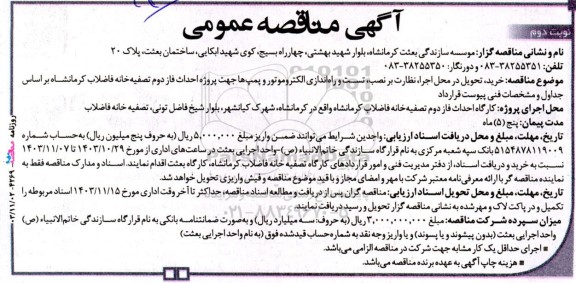 نوبت دوم
آگهی مناقصه عمومی
نام و نشانی مناقصه گزار: موسسه سازندگی بعثت کرمانشاه، بلوار شهید بهشتی، چهارراه بسیج، کوی شهید ابکایی، ساختمان بعثت، پلاک ۲۰
تلفن: ۳۸۲۵۵۳۵۱-۰۸۳ و دورنگار: ۳۸۲۵۵۳۵۰-۰۸۳
موضوع مناقصه: خرید، تحویل در محل اجرا، نظارت بر نصب، تست و راه‌اندازی الکتروموتور و پمپ‌ها جهت پروژه احداث فاز دوم تصفیه‌خانه فاضلاب کرمانشاه بر اساس
جداول و مشخصات فنی پیوست قرارداد
محل اجرای پروژه: کارگاه احداث فاز دوم تصفیه‌خانه فاضلاب کرمانشاه واقع در کرمانشاه، شهرک کیانشهر، بلوار شیخ فاضل تونی، تصفیه خانه فاضلاب
مدت پیمان: پنج (۵) ماه
تاریخ، مهلت، مبلغ و محل دریافت اسناد ارزیابی: واجدین شرایط می‌توانند ضمن واریز مبلغ ۵,۰۰۰,۰۰۰ ریال (به حروف پنج میلیون ریال) به حساب شماره
۵۱۵۴۸۷۸۱۱۹۰۰۹ بانک سپه شعبه مرکزی به نام قرارگاه سازندگی خاتم‌الانبیاء (ص)-واحد اجرایی بعثت در ساعت‌های اداری از مورخ ۱۴۰۳/۱۰/۲۹ تا ۱۴۰۳/۱۱/۰۷
نسبت به خرید و دریافت اسناد، از دفتر مدیریت فنی و امور قراردادهای کارگاه تصفیه خانه فاضلاب کرمانشاه، کارگاه بعثت اقدام نمایند. اسناد و مدارک مناقصه فقط به
نماینده مناقصه گر با ارائه معرفی‌نامه معتبر شرکت با مهر و امضای مجاز و با قید موضوع مناقصه و فیش واریزی تحویل خواهد شد.
تاریخ، مهلت، مبلغ و محل تحویل اسناد ارزیابی: مناقصه گران پس از دریافت و مطالعه اسناد مناقصه، حداکثر تا آخر وقت اداری مورخ ۱۴۰۳/۱۱/۱۵ اسناد مربوطه را
تکمیل و در پاکت لاک و مهرشده به نشانی مناقصه گزار تحویل و رسید دریافت نمایند.
میزان سپرده شرکت مناقصه: مبلغ ۳,۰۰۰,۰۰۰,۰۰۰ ریال (به حروف سه میلیارد ریال) و به‌صورت ضمانتنامه بانکی به نام قرارگاه سازندگی خاتم‌الانبیاء (ص)
واحد اجرایی بعثت (بدون پیشوند و یا پسوند) و یا واریز وجه نقد به شماره حساب قیدشده فوق (به نام واحد اجرایی بعثت)
■ اجرای حداقل یک کار مشابه جهت شرکت در مناقصه الزامی می‌باشد.
■ هزینه چاپ آگهی به عهده برنده مناقصه می‌باشد.